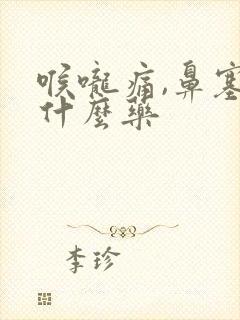 喉嚨痛,鼻塞
什麼藥
李珍